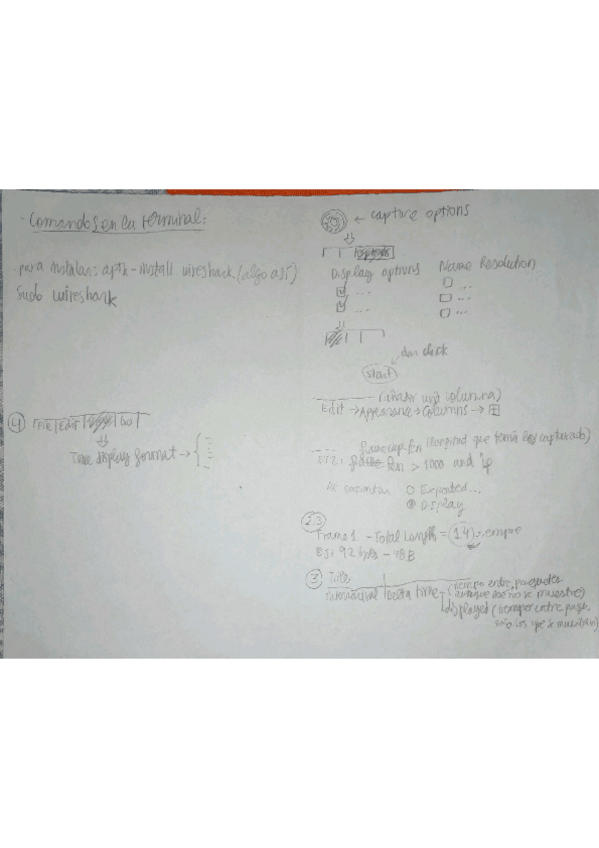 - Comandos en la terminal:
- para instalar: aptk-install wireshark. (algo así)
sudo wireshark
4
File | Edit | | Go |
Time display format → {
← capture options
Options
Display options
Name Resolution
...
...
...
...
...
dar click
start
(añadir una columna)
Edit → Appearance → Columns →
(longitud que toma los capturado)
len > 1000 and ip
Exported...
Display
2.3
Frame 1 - Total Length = 14 siempre
EJ: 92 bytes - 78 B
3
Title
delta time
(tiempo entre paquetes
aunque no se muestre)
displayed (tiempo entre paq.
los que se muestran)